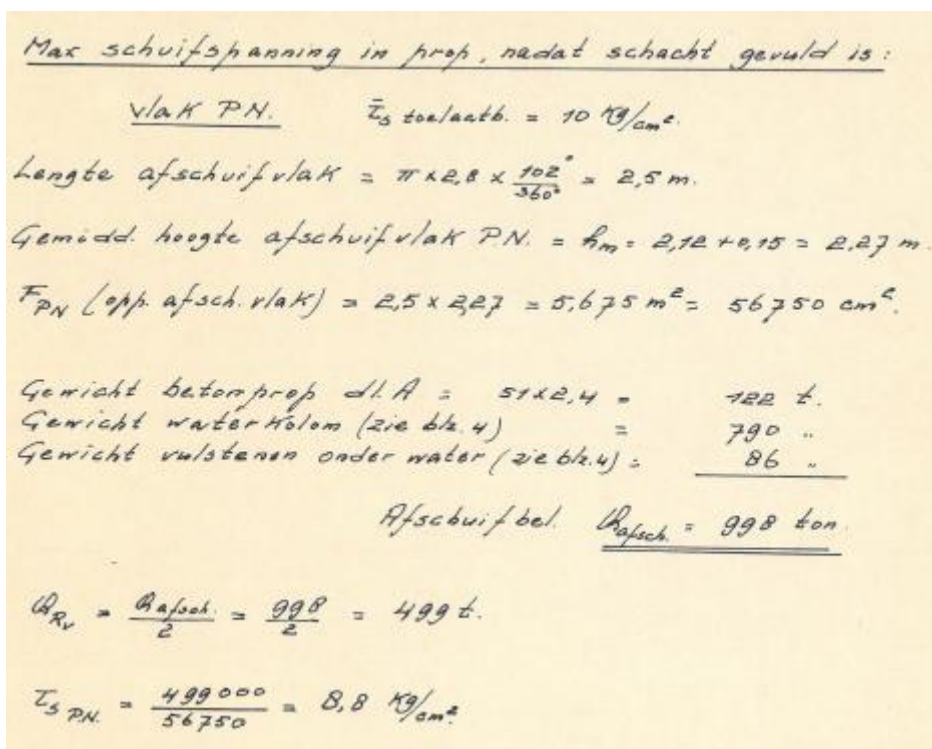 Max schuifspanning in prop, nadat schacht gevuld is:
vlak PN. τ̄s toelaatb. = 10 kg/cm².
Lengte afschuifvlak = π x 2,8 x 102°/360° = 2,5 m.
Gemidd. hoogte afschuifvlak PN. = hm = 2,12 + 0,15 = 2,27 m.
F PN (opp. afsch. vlak) = 2,5 x 2,27 = 5,675 m² = 56750 cm².
Gewicht betonprop dl. A = 51 x 2,4 = 122 t.
Gewicht waterkolom (zie blz. 4) = 790 "
Gewicht vulstenen onder water (zie blz. 4) = 86 "
Afschuifbel. Qafsch. = 998 ton.
QRv = Qafsch./2 = 998/2 = 499 t.
τs PN. = 499000/56750 = 8,8 kg/cm².